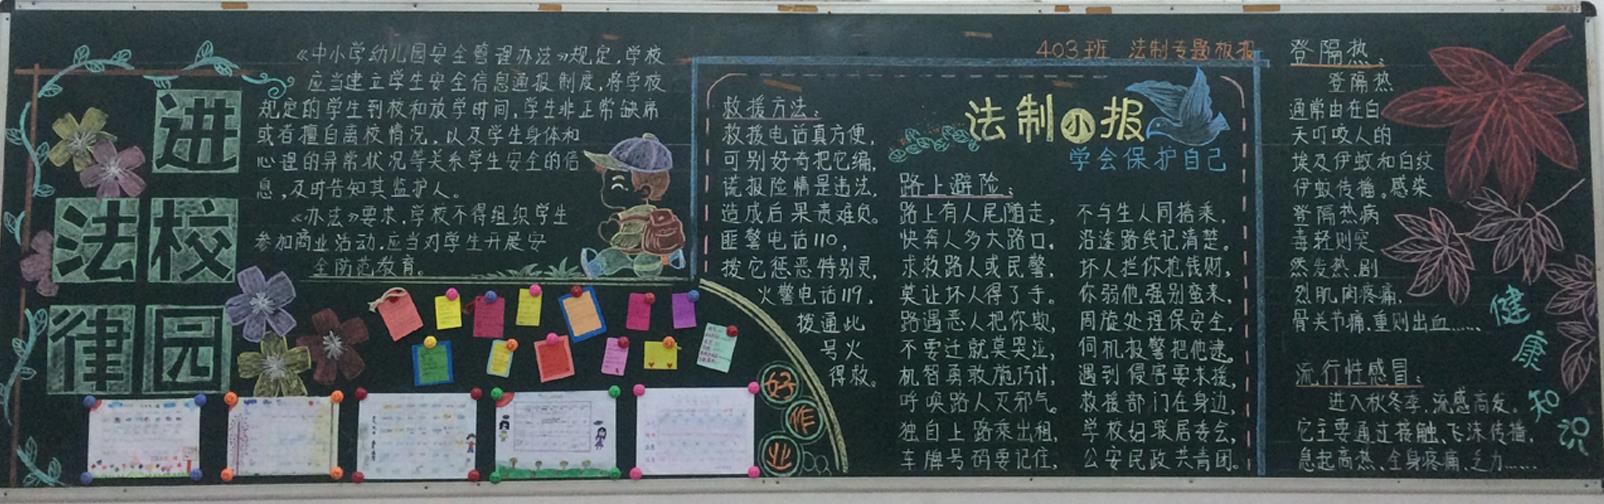 进
法校
律园
《中小学幼儿园安全管理办法》规定,学校
应当建立学生安全信息通报制度,将学校
规定的学生到校和放学时间,学生非正常缺席
或者擅自离校情况,以及学生身体和
心理的异常状况等关系学生安全的信
息,及时告知其监护人。
《办法》要求,学校不得组织学生
参加商业活动,应当对学生开展安
全防范教育。
好
作
业
403班 法制专题板报
法制小报
学会保护自己
救援方法:
救援电话真方便,
可别好奇把它编,
谎报险情是违法,
造成后果责难负。
匪警电话110,
拨它惩恶特别灵,
火警电话119,
拨通此
号火
得救。
路上避险:
路上有人尾随走,
快奔人多大路口,
求救路人或民警,
莫让坏人得了手。
路遇恶人把你欺,
不要迁就莫哭泣,
机智勇敢施巧计,
呼唤路人灭邪气。
独自上路乘出租,
车牌号码要记住,
不与生人同搭乘,
沿途路线记清楚。
坏人拦你抢钱财,
你弱他强别蛮来,
周旋处理保安全,
伺机报警把他逮。
遇到侵害要求援,
救援部门在身边,
学校妇联居委会,
公安民政共青团。
登隔热:
登隔热
通常由在白
天叮咬人的
埃及伊蚊和白纹
伊蚊传播。感染
登隔热病
毒轻则突
然发热,剧
烈肌肉疼痛,
骨关节痛,重则出血……
流行性感冒:
进入秋冬季,流感高发。
它主要通过接触、飞沫传播,
急起高热、全身疼痛、乏力……
健康知识